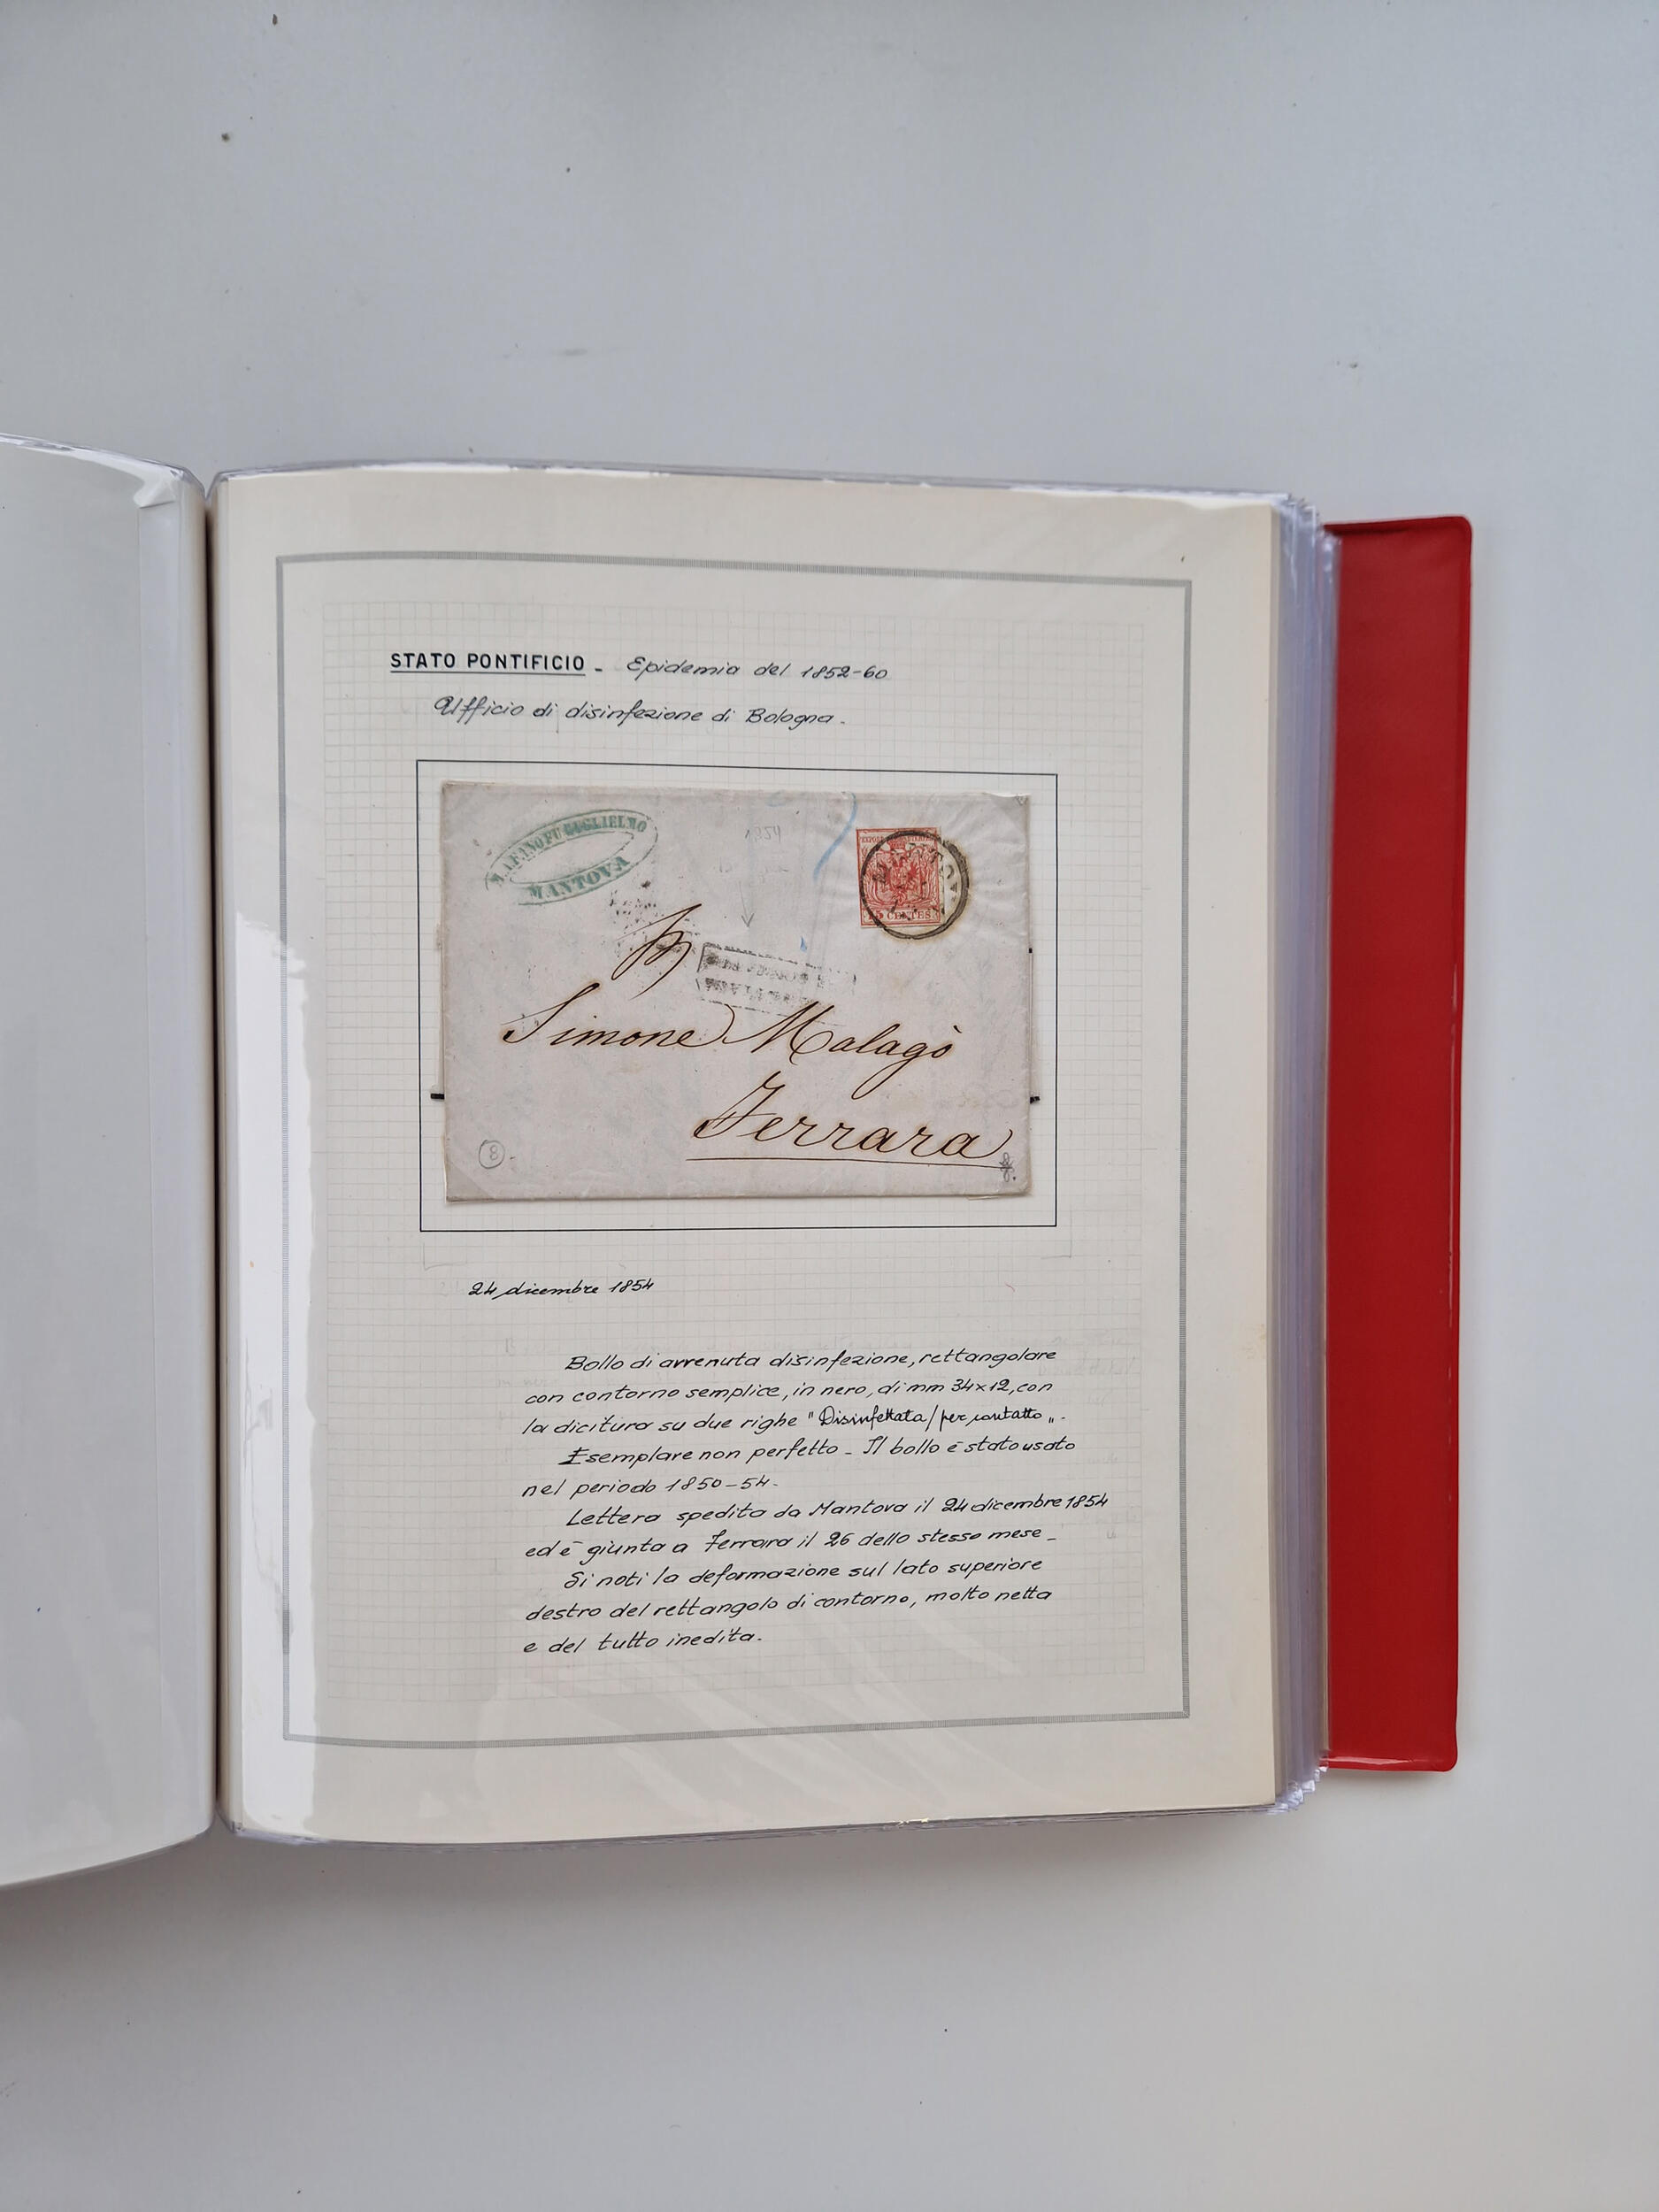 STATO PONTIFICIO - Epidemia del 1852-60
Ufficio di disinfezione di Bologna.
GUGLIELMO
MANTOVA
15 CENTES
Simone Malagò
Ferrara
8
24 dicembre 1854
Bollo di avvenuta disinfezione, rettangolare
con contorno semplice, in nero, di mm 34x12, con
la dicitura su due righe "Disinfettata/per contatto".
Esemplare non perfetto - Il bollo è stato usato
nel periodo 1850-54.
Lettera spedita da Mantova il 24 dicembre 1854
ed è giunta a Ferrara il 26 dello stesso mese -
Si noti la deformazione sul lato superiore
destro del rettangolo di contorno, molto netta
e del tutto inedita.